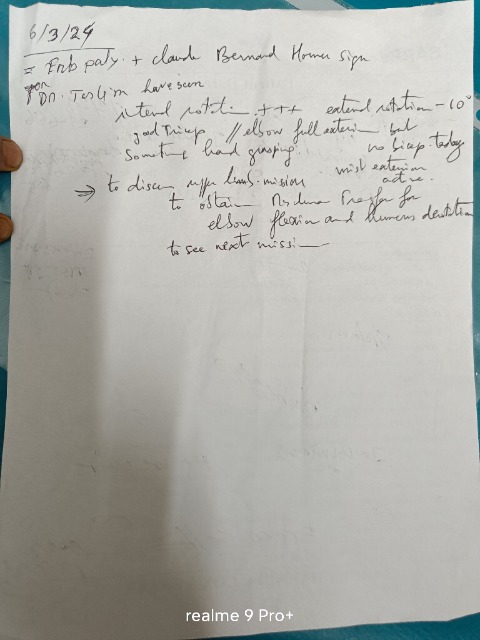 6/3/24
= Erb palsy + claude Bernard Horner sign
Dr. Taslim have seen
internal rotation +++ external rotation - 60°
good Tricep // elbow full extension but
no bicep today
Something hand grasping
wrist extension
active.
⇒ to discuss upper limb mission
to obtain Transfer for
elbow flexion and Humerus
to see next mission
realme 9 Pro+